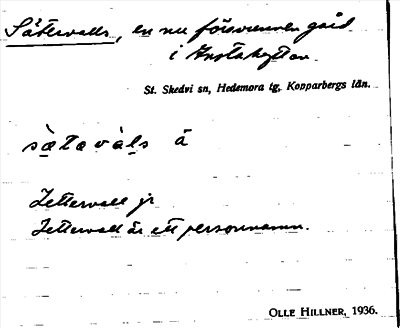 Sätervalls, en nu försvunnen gård
i
St. Skedvi sn, Hedemora tg, Kopparbergs län.
Zettervall jr
Zettervall är ett personnamn.
OLLE HILLNER, 1936.